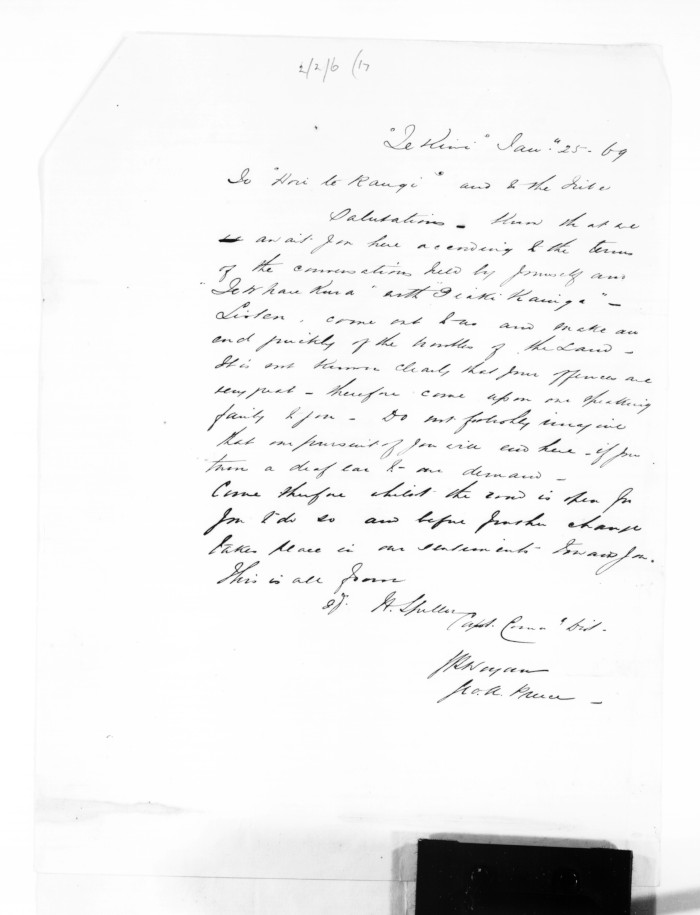 2/2/6 (17
"Te Kini" Jan" 25 - 69
To "Hori te Rangi" and to the Tribe
Salutations - Know that we
await you here according to the terms
of the conversations held by yourself and
"Te Whare Kura" with "Tiaki Kainga" -
Listen, come out to us and make an
end quickly of the troubles of the Land -
It is not known clearly that your offences are
very great - therefore come upon our speaking
fairly to you - Do not foolishly imagine
that our pursuit of you will end here - if you
turn a deaf ear to our demand -
Come therefore whilst the road is open for
you to do so and before further change
takes place in our sentiments toward you.
This is all from
H. Spiller
Capt. Comm" Dist -
Geo. A. Preece -